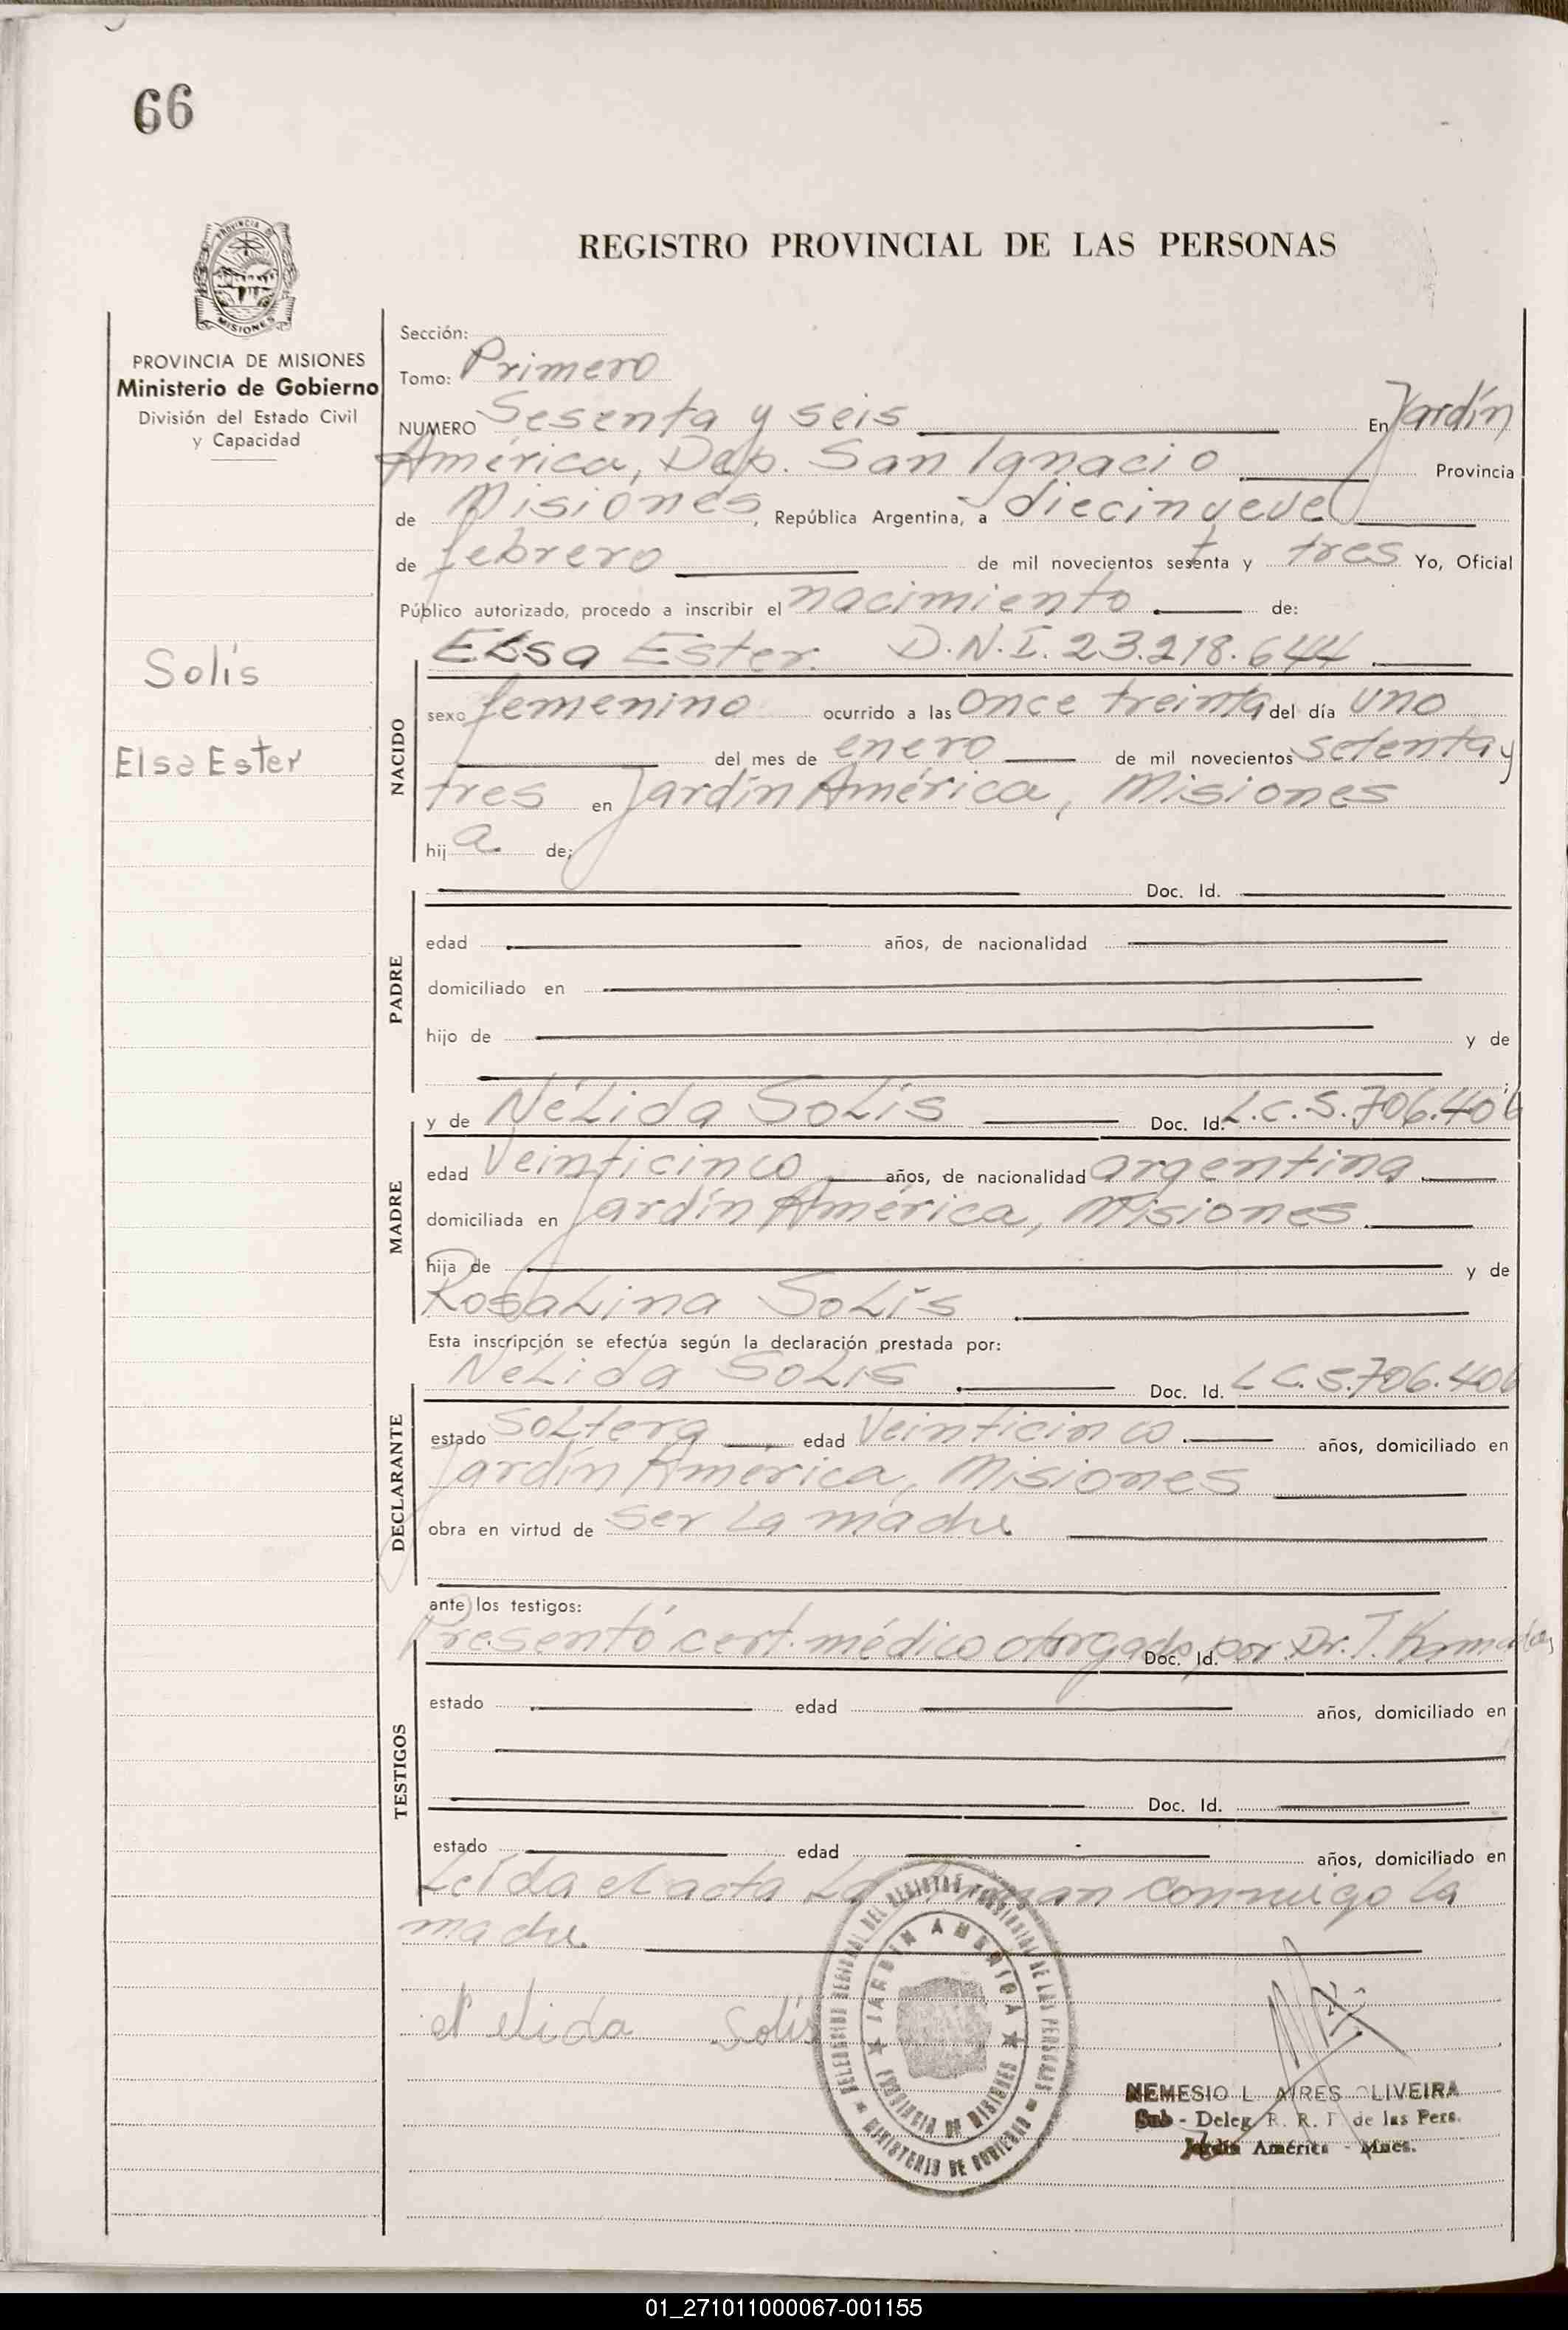 66
PROVINCIA DE MISIONES
REGISTRO PROVINCIAL DE LAS PERSONAS
PROVINCIA DE MISIONES
Ministerio de Gobierno
División del Estado Civil
y Capacidad
Solís
Elsa Ester
Sección:
Tomo: Primero
NUMERO Sesenta y seis En Jardín
América, Dep. San Ignacio Provincia
de Misiones, República Argentina, a diecinueve
de febrero de mil novecientos setenta y tres Yo, Oficial
Público autorizado, procedo a inscribir el nacimiento de:
NACIDO
Elsa Ester. D.N.I. 23.218.644
sexo femenino ocurrido a las once treinta del día uno
del mes de enero de mil novecientos setenta y
tres en Jardín América, Misiones
hija de:
PADRE
Doc. Id.
edad años, de nacionalidad
domiciliado en
hijo de y de
MADRE
y de Nélida Solís Doc. Id. L.C.5.706.406
edad Veinticinco años, de nacionalidad argentina
domiciliada en Jardín América, Misiones
hija de y de
Rosalina Solís
Esta inscripción se efectúa según la declaración prestada por:
DECLARANTE
Nélida Solís Doc. Id. L.C.5.706.406
estado Soltera edad Veinticinco años, domiciliado en
Jardín América, Misiones
obra en virtud de ser la madre
ante los testigos:
TESTIGOS
Presentó cert. médico otorgado por Dr. J. Doc. Id.
estado edad años, domiciliado en
Doc. Id.
estado edad años, domiciliado en
Leída el acta La firman conmigo la
madre
Nelida Solis
DELEGACION DEL REGISTRO PROVINCIAL DE LAS PERSONAS
MINISTERIO DE GOBIERNO
JARDIN AMERICA
PROVINCIA DE MISIONES
NEMESIO L. AIRES OLIVEIRA
Sub - Deleg. R. R. P. de las Pers.
Jardín América - Mnes.
01_271011000067-001155